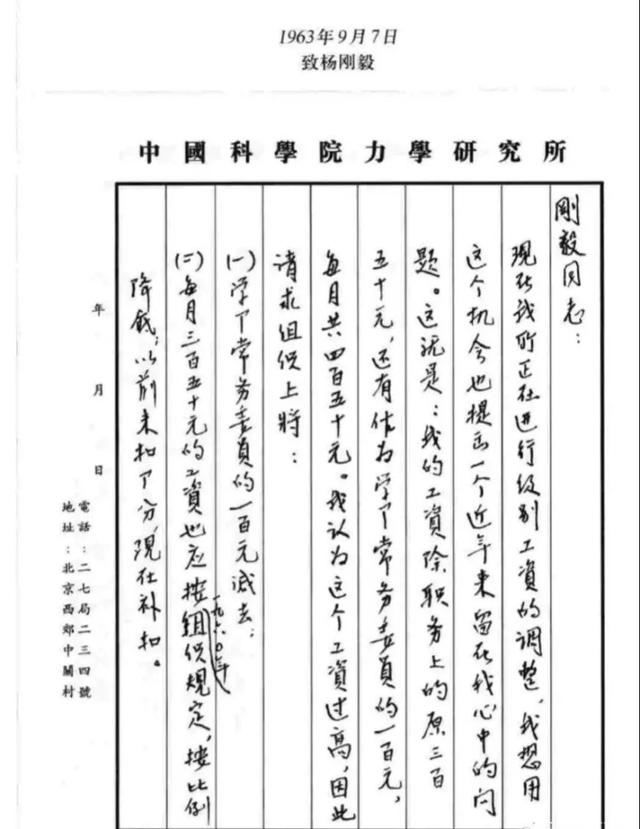 1963年9月7日
致杨刚毅
中國科學院力學研究所
剛毅同志：
现在我所正在进行级别工资的调整，我想用
这个机会也提出一个近年来留在我心中的问
题。这就是：我的工资除职务上的原三百
五十元，还有作为学卩常务委员的一百元，
每月共四百五十元。我认为这个工资过高，因此
请求组织上将：
(一)学卩常务委员的一百元减去；
(二)每月三百五十元的工资也应按一九六〇年组织规定，按比例
降低，以前未扣卩分，现在补扣。
年 月 日
電話：二七局二三四號
地址：北京西郊中關村